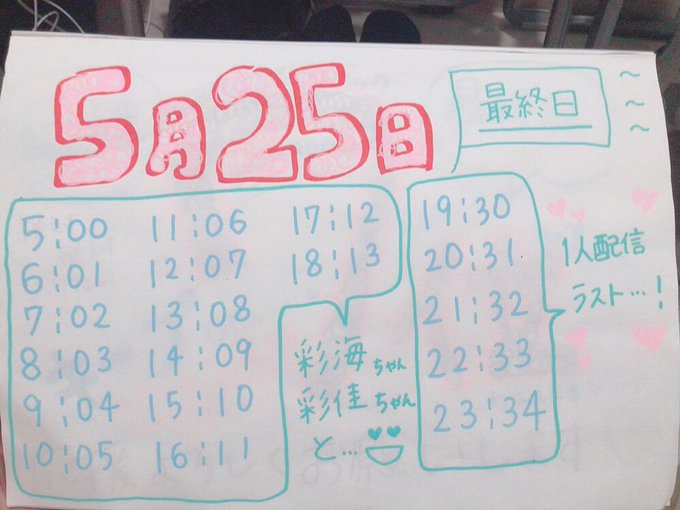 5月25日
最終日
~
~
~
5:00 11:06 17:12
6:01 12:07 18:13
7:02 13:08
8:03 14:09
9:04 15:10
10:05 16:11
彩海ちゃん
彩佳ちゃん
と…
19:30
20:31
21:32
22:33
23:34
1人配信
ラスト…!